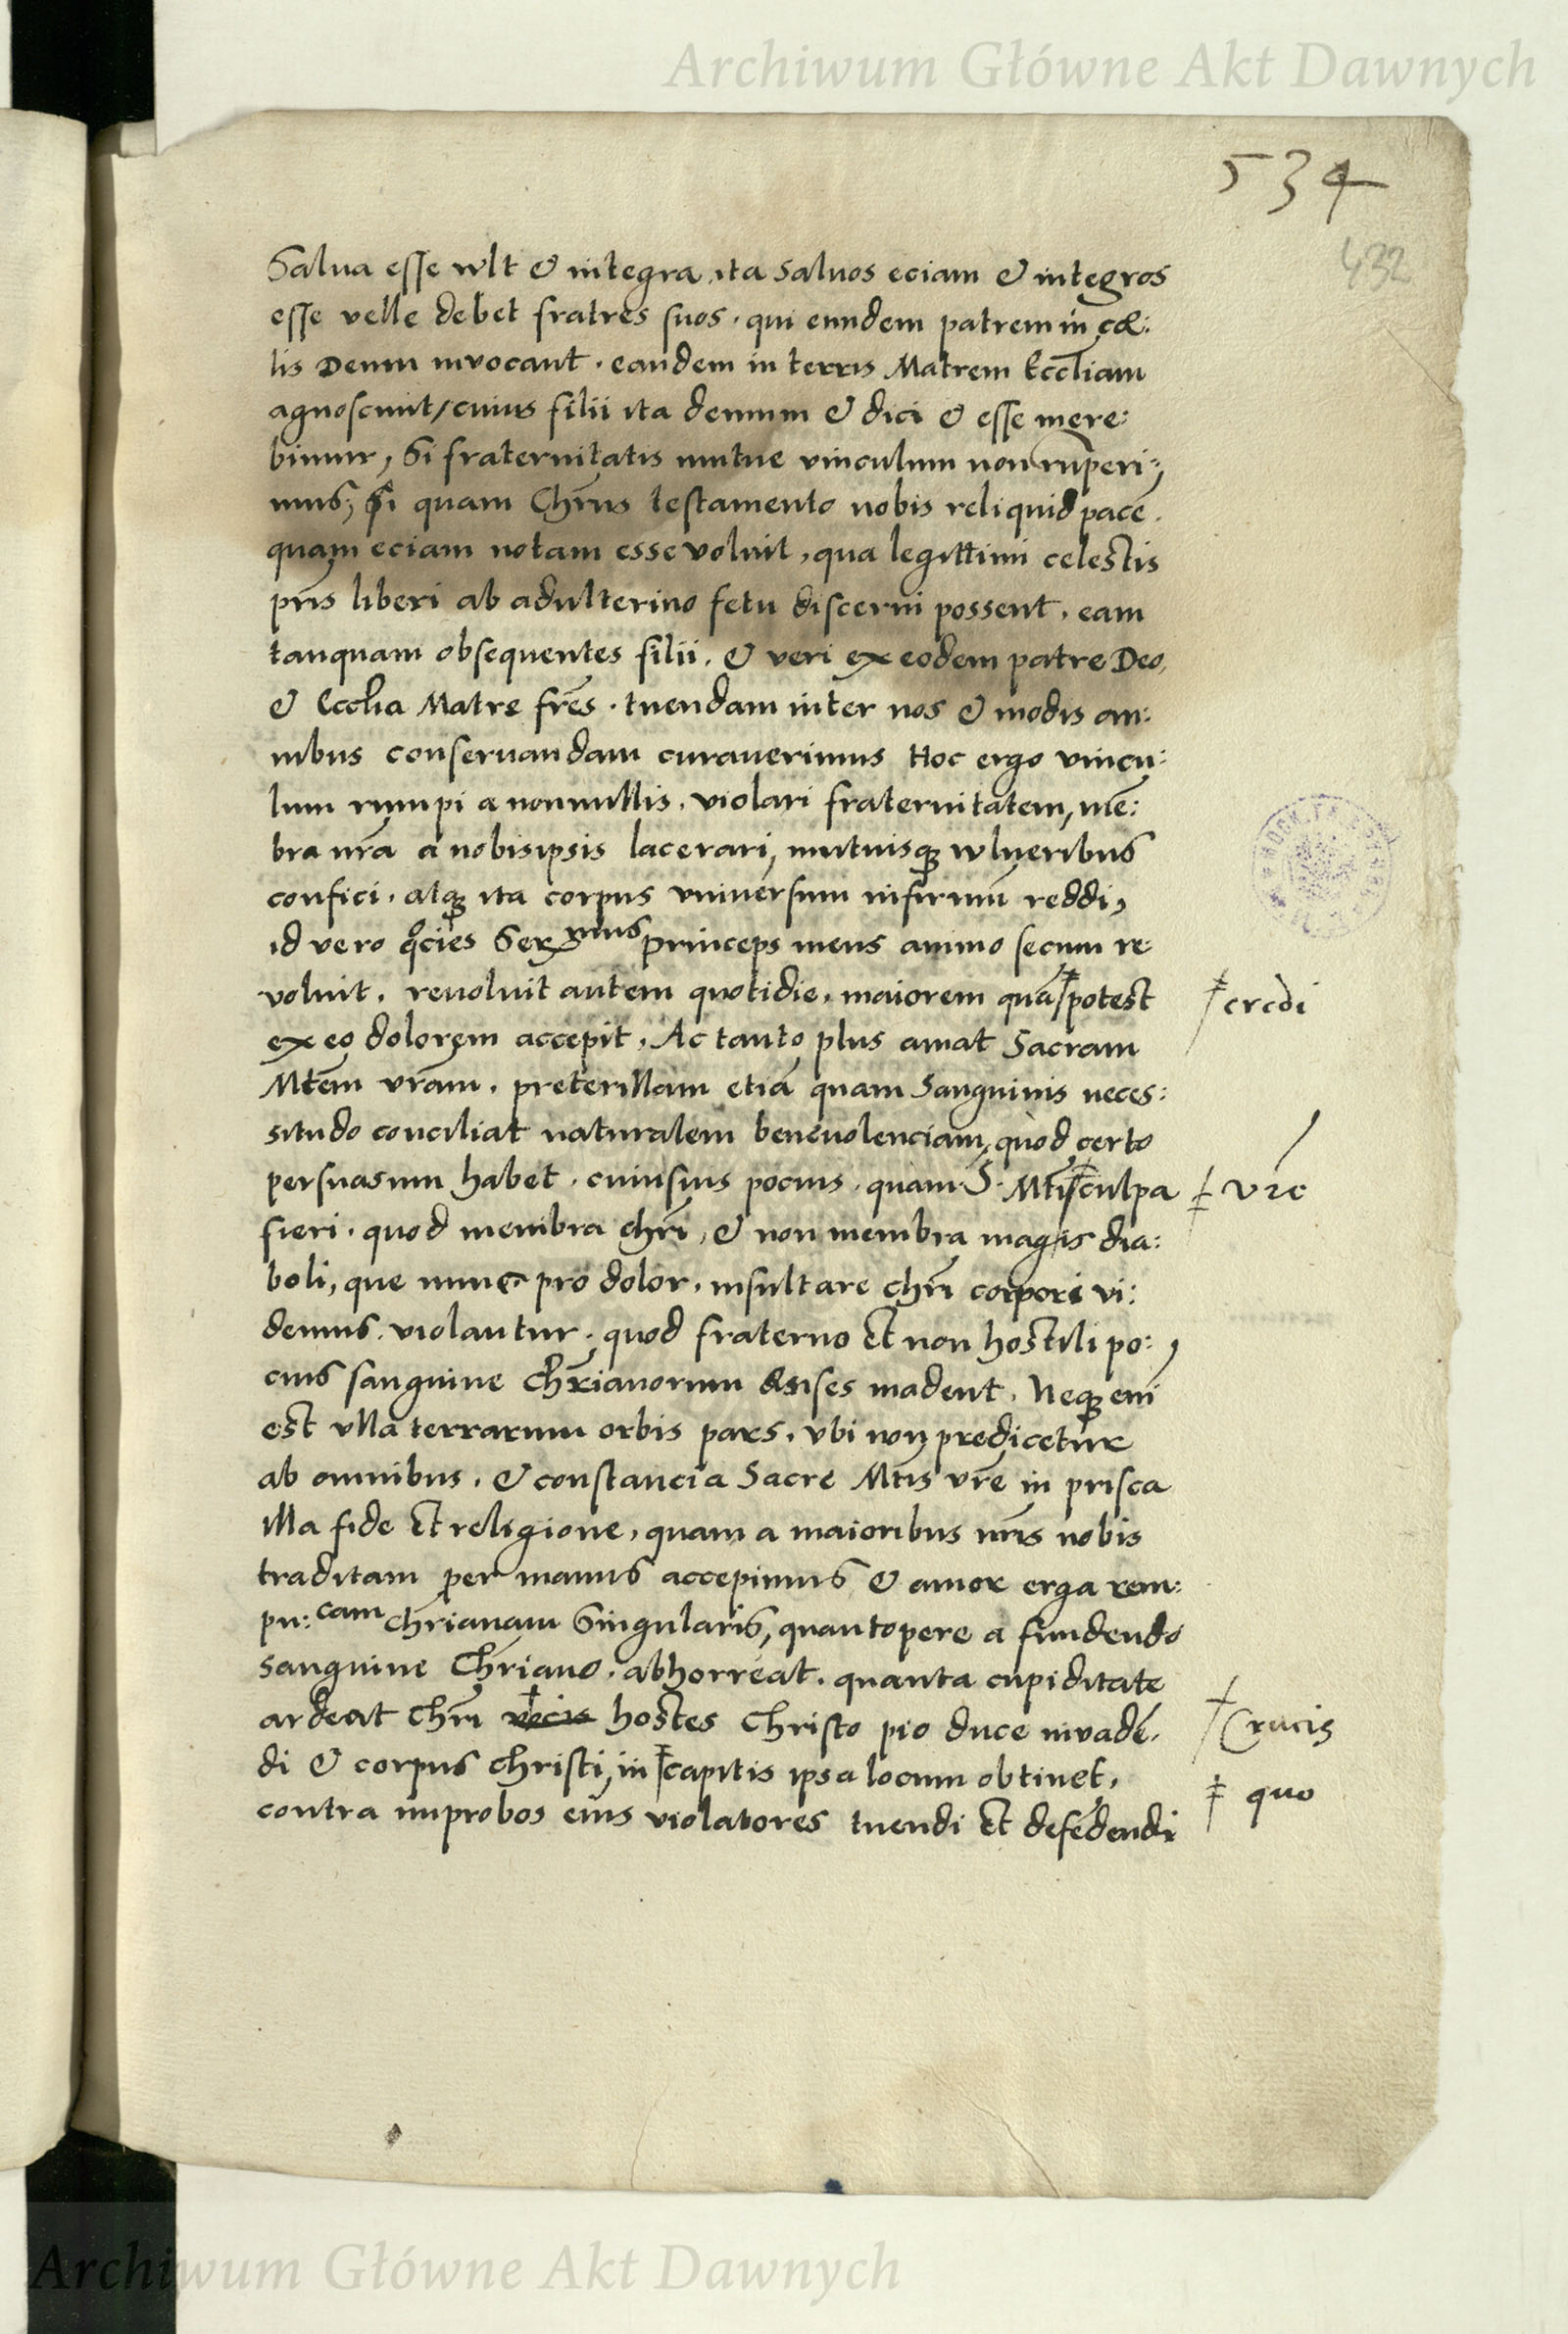 Archiwum Główne Akt Dawnych
534
432
Salua esse wlt & integra, ita saluos eciam & integros
esse velle debet fratres suos. qui eundem patrem in cœ:
lis Deum invocant. eandem in terris Matrem Eccl̄iam
agnoscunt/cuius filii ita demum & dici & esse mere:
bimur, Si fraternitatis mutue vinculum non ruperi:
mus; si quam Chr̄us testamento nobis reliquid pacē.
quam eciam notam esse voluit, qua legittimi celestis
pr̄is liberi ab adulterino fetu discerni possent. eam
tanquam obsequentes filii. & veri ex eodem patre Deo,
& Eccl̄ia Matre fr̄es. tuendam inter nos & modis om:
nibus conseruandam curauerimus Hoc ergo vincu:
lum rumpi a nonnullis. violari fraternitatem, mē:
bra nr̄a a nobisipsis lacerari, mutuisq̄ wlneribus
confici. atq̄ ita corpus vniuersum infirmū reddi,
id vero q̄cies Ser mus princeps meus animo secum re
voluit. reuoluit autem quotidie. maiorem quā ‡ potest
‡ credi
ex eo dolorem accepit. Ac tanto plus amat Sacram
Mt̄em vr̄am. preter illam etiā quam Sanguinis neces:
situdo conciliat naturalem beneuolenciam, quod certo
persuasum habet. cuiusuis pocius. quam S. Mt̄is ‡ culpa
‡ vr̄e
fieri. quod membra chr̄i, & non membra magis dia:
boli, que nunc pro dolor. insultare chr̄i corpori vi:
demus. violantur. quod fraterno et non hostili po:
cius sanguine Chr̄ianorum enses madent. Neq̄ eni
est vlla terrarum orbis pars. vbi non predicetur
ab omnibus. & constancia Sacre Mt̄is vr̄e in prisca
illa fide et religione. quam a maioribus nr̄is nobis
traditam per manus accepimus & amor erga rem:
pu: cam chr̄ianam Singularis, quantopere a fundendo
sanguine Chr̄iano. abhorreat. quanta cupiditate
ardeat Chr̄i hostes Christo pio duce invadē.
‡ Crucis
di & corpus christi, in ‡ capitis ipsa locum obtinet.
‡ quo
contra improbos eius violatores tuendi et defēdendi
Archiwum Główne Akt Dawnych